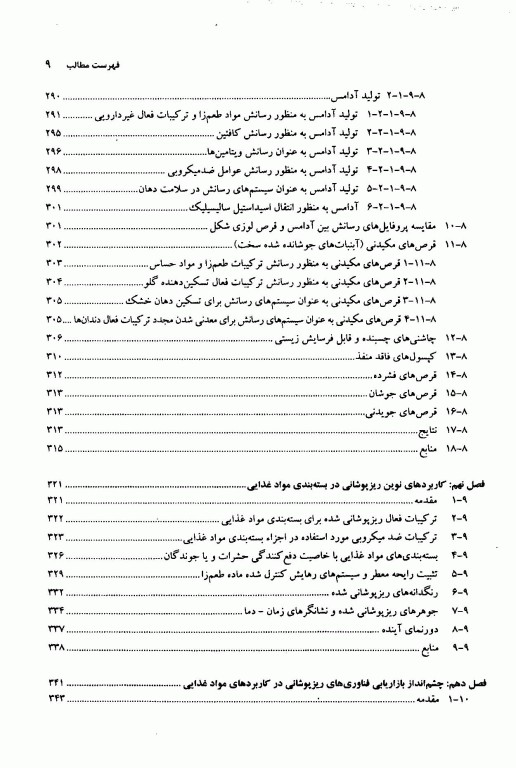 فهرست مطالب ۹
۸-۹-۱-۲ تولید آدامس ۲۹۰
۸-۹-۱-۲-۱ تولید آدامس به منظور رسانش مواد طعم‌زا و ترکیبات فعال غیردارویی ۲۹۱
۸-۹-۱-۲-۲ تولید آدامس به منظور رسانش کافئین ۲۹۵
۸-۹-۱-۲-۳ تولید آدامس به عنوان رسانش ویتامین‌ها ۲۹۶
۸-۹-۱-۲-۴ تولید آدامس به منظور رسانش عوامل ضدمیکروبی ۲۹۸
۸-۹-۱-۲-۵ تولید آدامس به عنوان سیستم‌های رسانش در سلامت دهان ۲۹۹
۸-۹-۱-۲-۶ آدامس به منظور انتقال اسیداستیل سالیسیلیک ۳۰۱
۸-۱۰ مقایسه پروفایل‌های رسانش بین آدامس و قرص لوزی شکل ۳۰۱
۸-۱۱ قرص‌های مکیدنی (آبنبات‌های جوشانده شده سخت) ۳۰۲
۸-۱۱-۱ قرص‌های مکیدنی به منظور رسانش ترکیبات طعم‌زا و مواد حساس ۳۰۳
۸-۱۱-۲ قرص‌های مکیدنی به منظور رسانش ترکیبات فعال تسکین‌دهنده گلو ۳۰۴
۸-۱۱-۳ قرص‌های مکیدنی به عنوان سیستم‌های رسانش برای تسکین دهان خشک ۳۰۵
۸-۱۱-۴ قرص‌های مکیدنی به عنوان سیستم‌های رسانش برای معدنی شدن مجدد ترکیبات فعال دندان‌ها ۳۰۵
۸-۱۲ چاشنی‌های چسبنده و قابل فرسایش زیستی ۳۰۶
۸-۱۳ کپسول‌های فاقد منفذ ۳۱۰
۸-۱۴ قرص‌های فشرده ۳۱۲
۸-۱۵ قرص‌های جوشان ۳۱۳
۸-۱۶ قرص‌های جویدنی ۳۱۳
۸-۱۷ نتایج ۳۱۳
۸-۱۸ منابع ۳۱۵
فصل نهم: کاربردهای نوین ریزپوشانی در بسته‌بندی مواد غذایی ۳۲۱
۹-۱ مقدمه ۳۲۱
۹-۲ ترکیبات فعال ریزپوشانی شده برای بسته‌بندی مواد غذایی ۳۲۲
۹-۳ ترکیبات ضد میکروبی مورد استفاده در اجزاء بسته‌بندی مواد غذایی ۳۲۳
۹-۴ بسته‌بندی‌های مواد غذایی با خاصیت دفع‌کنندگی حشرات و یا جوندگان ۳۲۶
۹-۵ تثبیت رایحه معطر و سیستم‌های رهایش کنترل شده ماده طعم‌زا ۳۲۹
۹-۶ رنگدانه‌های ریزپوشانی شده ۳۳۲
۹-۷ جوهرهای ریزپوشانی شده و نشانگرهای زمان - دما ۳۳۴
۹-۸ دورنمای آینده ۳۳۷
۹-۹ منابع ۳۳۸
فصل دهم: چشم‌انداز بازاریابی فناوری‌های ریزپوشانی در کاربردهای مواد غذایی ۳۴۱
۱۰-۱ مقدمه ۳۴۳